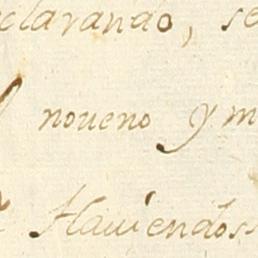 clarando, se
noueno y m
Hauiendos